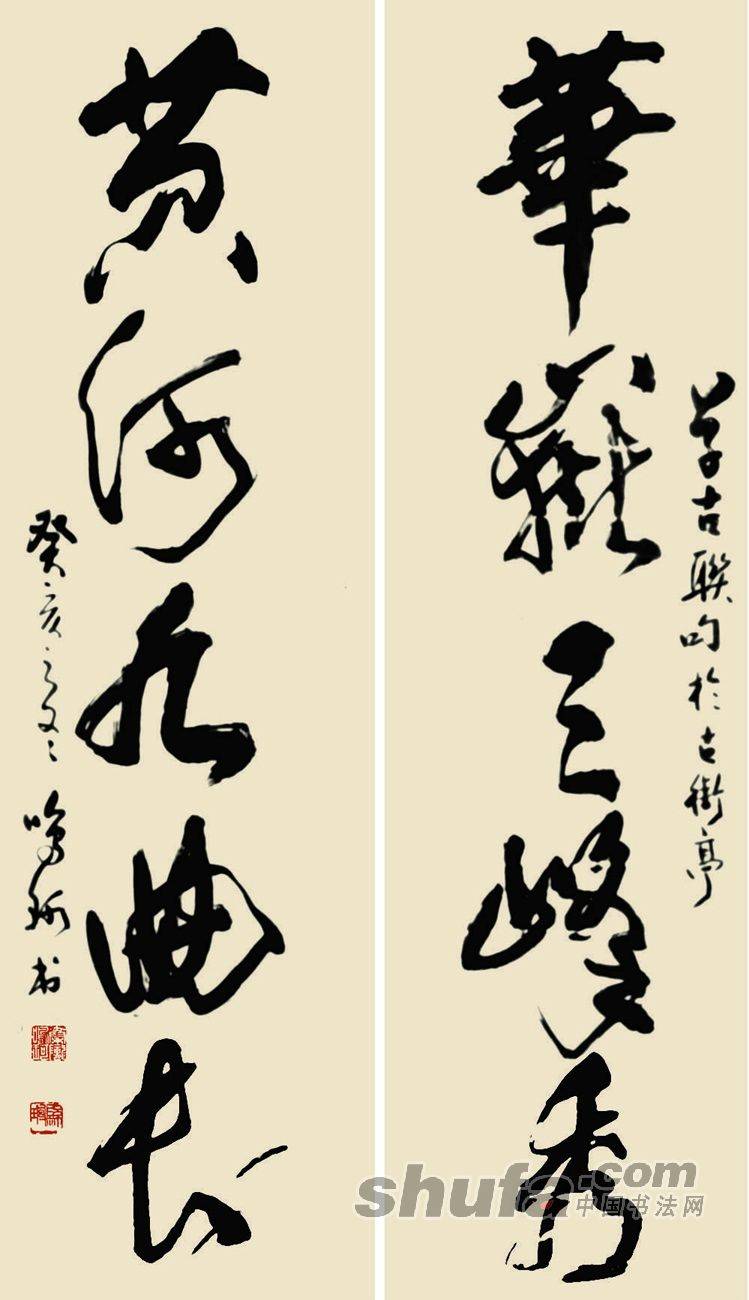 華嶽三峰秀
草古聯句於古街亭
黄河九曲長
癸亥之冬
書
shufa.com
中国书法网